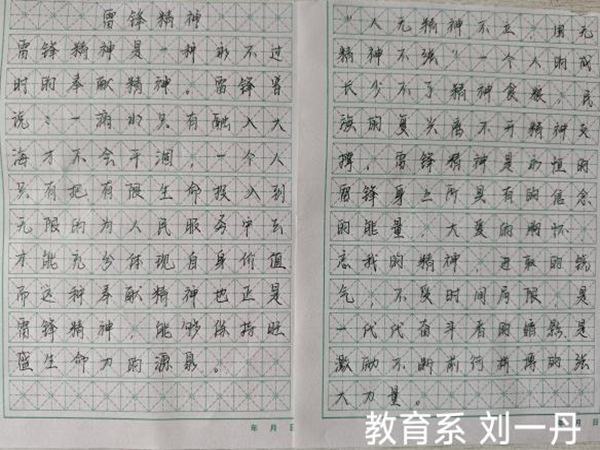 雷锋精神
雷锋精神是一种永不过
时的奉献精神。雷锋曾
说：一滴水只有融入大
海才不会干涸，一个人
只有把有限生命投入到
无限的为人民服务中去
才能充分体现自身价值
而这种奉献精神也正是
雷锋精神，能够保持旺
盛生命力的源泉。
年 月 日
“人无精神不立，国无
精神不强”一个人的成
长少不了精神食粮，民
族的复兴离不开精神支
撑，雷锋精神是永恒的
雷锋身上所具有的信念
的能量，大爱的胸怀，
忘我的精神，进取的锐
气，不受时间局限，是
一代代奋斗者的缩影，是
激励不断前行拼搏的强
大力量。
年 月 日
教育系 刘一丹